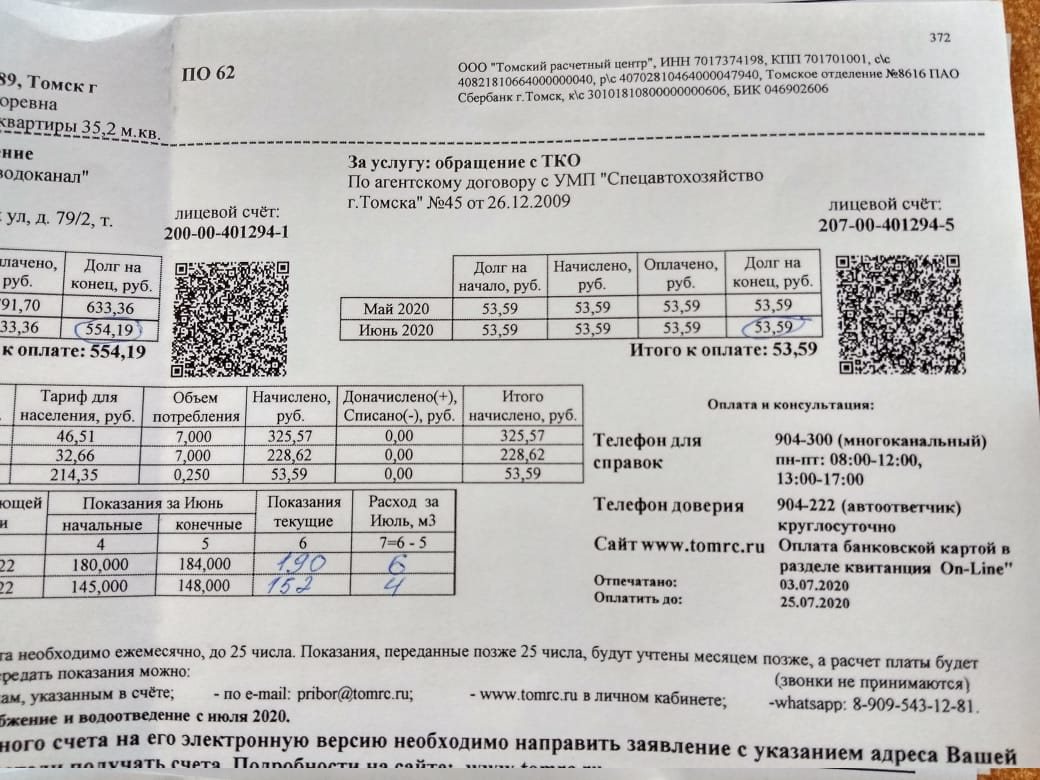 372
89, Томск г
оревна
квартиры 35,2 м.кв.
ПО 62
ООО "Томский расчетный центр", ИНН 7017374198, КПП 701701001, с\с
40821810664000000040, р\с 40702810464000047940, Томское отделение №8616 ПАО
Сбербанк г.Томск, к\с 30101810800000000606, БИК 046902606
ние
водоканал"
ул, д. 79/2, т.
лицевой счёт:
200-00-401294-1
За услугу: обращение с ТКО
По агентскому договору с УМП "Спецавтохозяйство
г.Томска" №45 от 26.12.2009
лицевой счёт:
207-00-401294-5
лачено, руб. Долг на конец, руб.
791,70 633,36
33,36 554,19
к оплате: 554,19
Долг на начало, руб. Начислено, руб. Оплачено, руб. Долг на конец, руб.
Май 2020 53,59 53,59 53,59 53,59
Июнь 2020 53,59 53,59 53,59 53,59
Итого к оплате: 53,59
Тариф для населения, руб. Объем потребления Начислено, руб. Доначислено(+), Списано(-), руб. Итого начислено, руб.
46,51 7,000 325,57 0,00 325,57
32,66 7,000 228,62 0,00 228,62
214,35 0,250 53,59 0,00 53,59
ющей
и
Показания за Июнь Показания текущие Расход за Июль, м3
начальные конечные
4 5 6 7=6 - 5
22 180,000 184,000 190 6
22 145,000 148,000 152 4
Оплата и консультация:
Телефон для справок 904-300 (многоканальный)
пн-пт: 08:00-12:00,
13:00-17:00
Телефон доверия 904-222 (автоответчик)
круглосуточно
Сайт www.tomrc.ru Оплата банковской картой в
разделе квитанция On-Line"
Отпечатано: 03.07.2020
Оплатить до: 25.07.2020
та необходимо ежемесячно, до 25 числа. Показания, переданные позже 25 числа, будут учтены месяцем позже, а расчет платы будет
ередать показания можно: (звонки не принимаются)
ам, указанным в счёте; - по e-mail: pribor@tomrc.ru; - www.tomrc.ru в личном кабинете; -whatsapp: 8-909-543-12-81.
бжение и водоотведение с июля 2020.
ного счета на его электронную версию необходимо направить заявление с указанием адреса Вашей
получать счета. Подробности на сайте: www.tomrc.ru